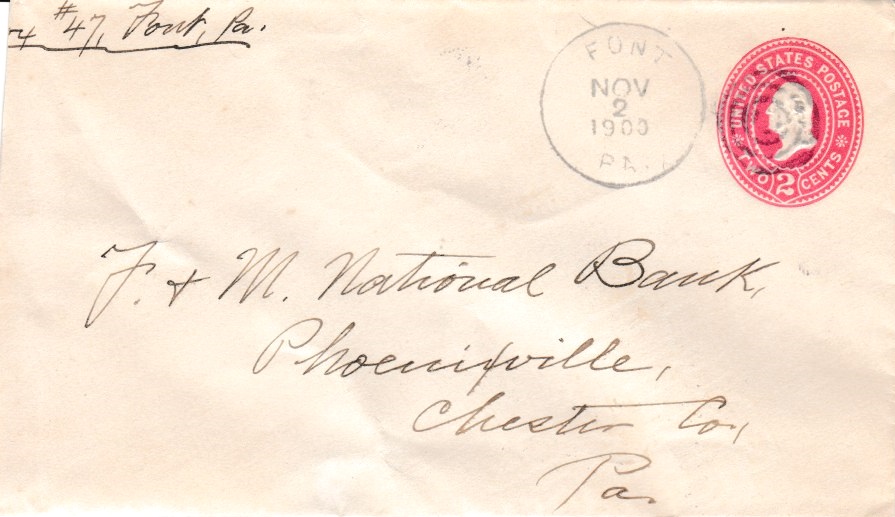 #47, Font, Pa.
FONT
NOV
2
1900
PA.
UNITED STATES POSTAGE
TWO 2 CENTS
F. & M. National Bank,
Phoenixville,
Chester Co.,
Pa.